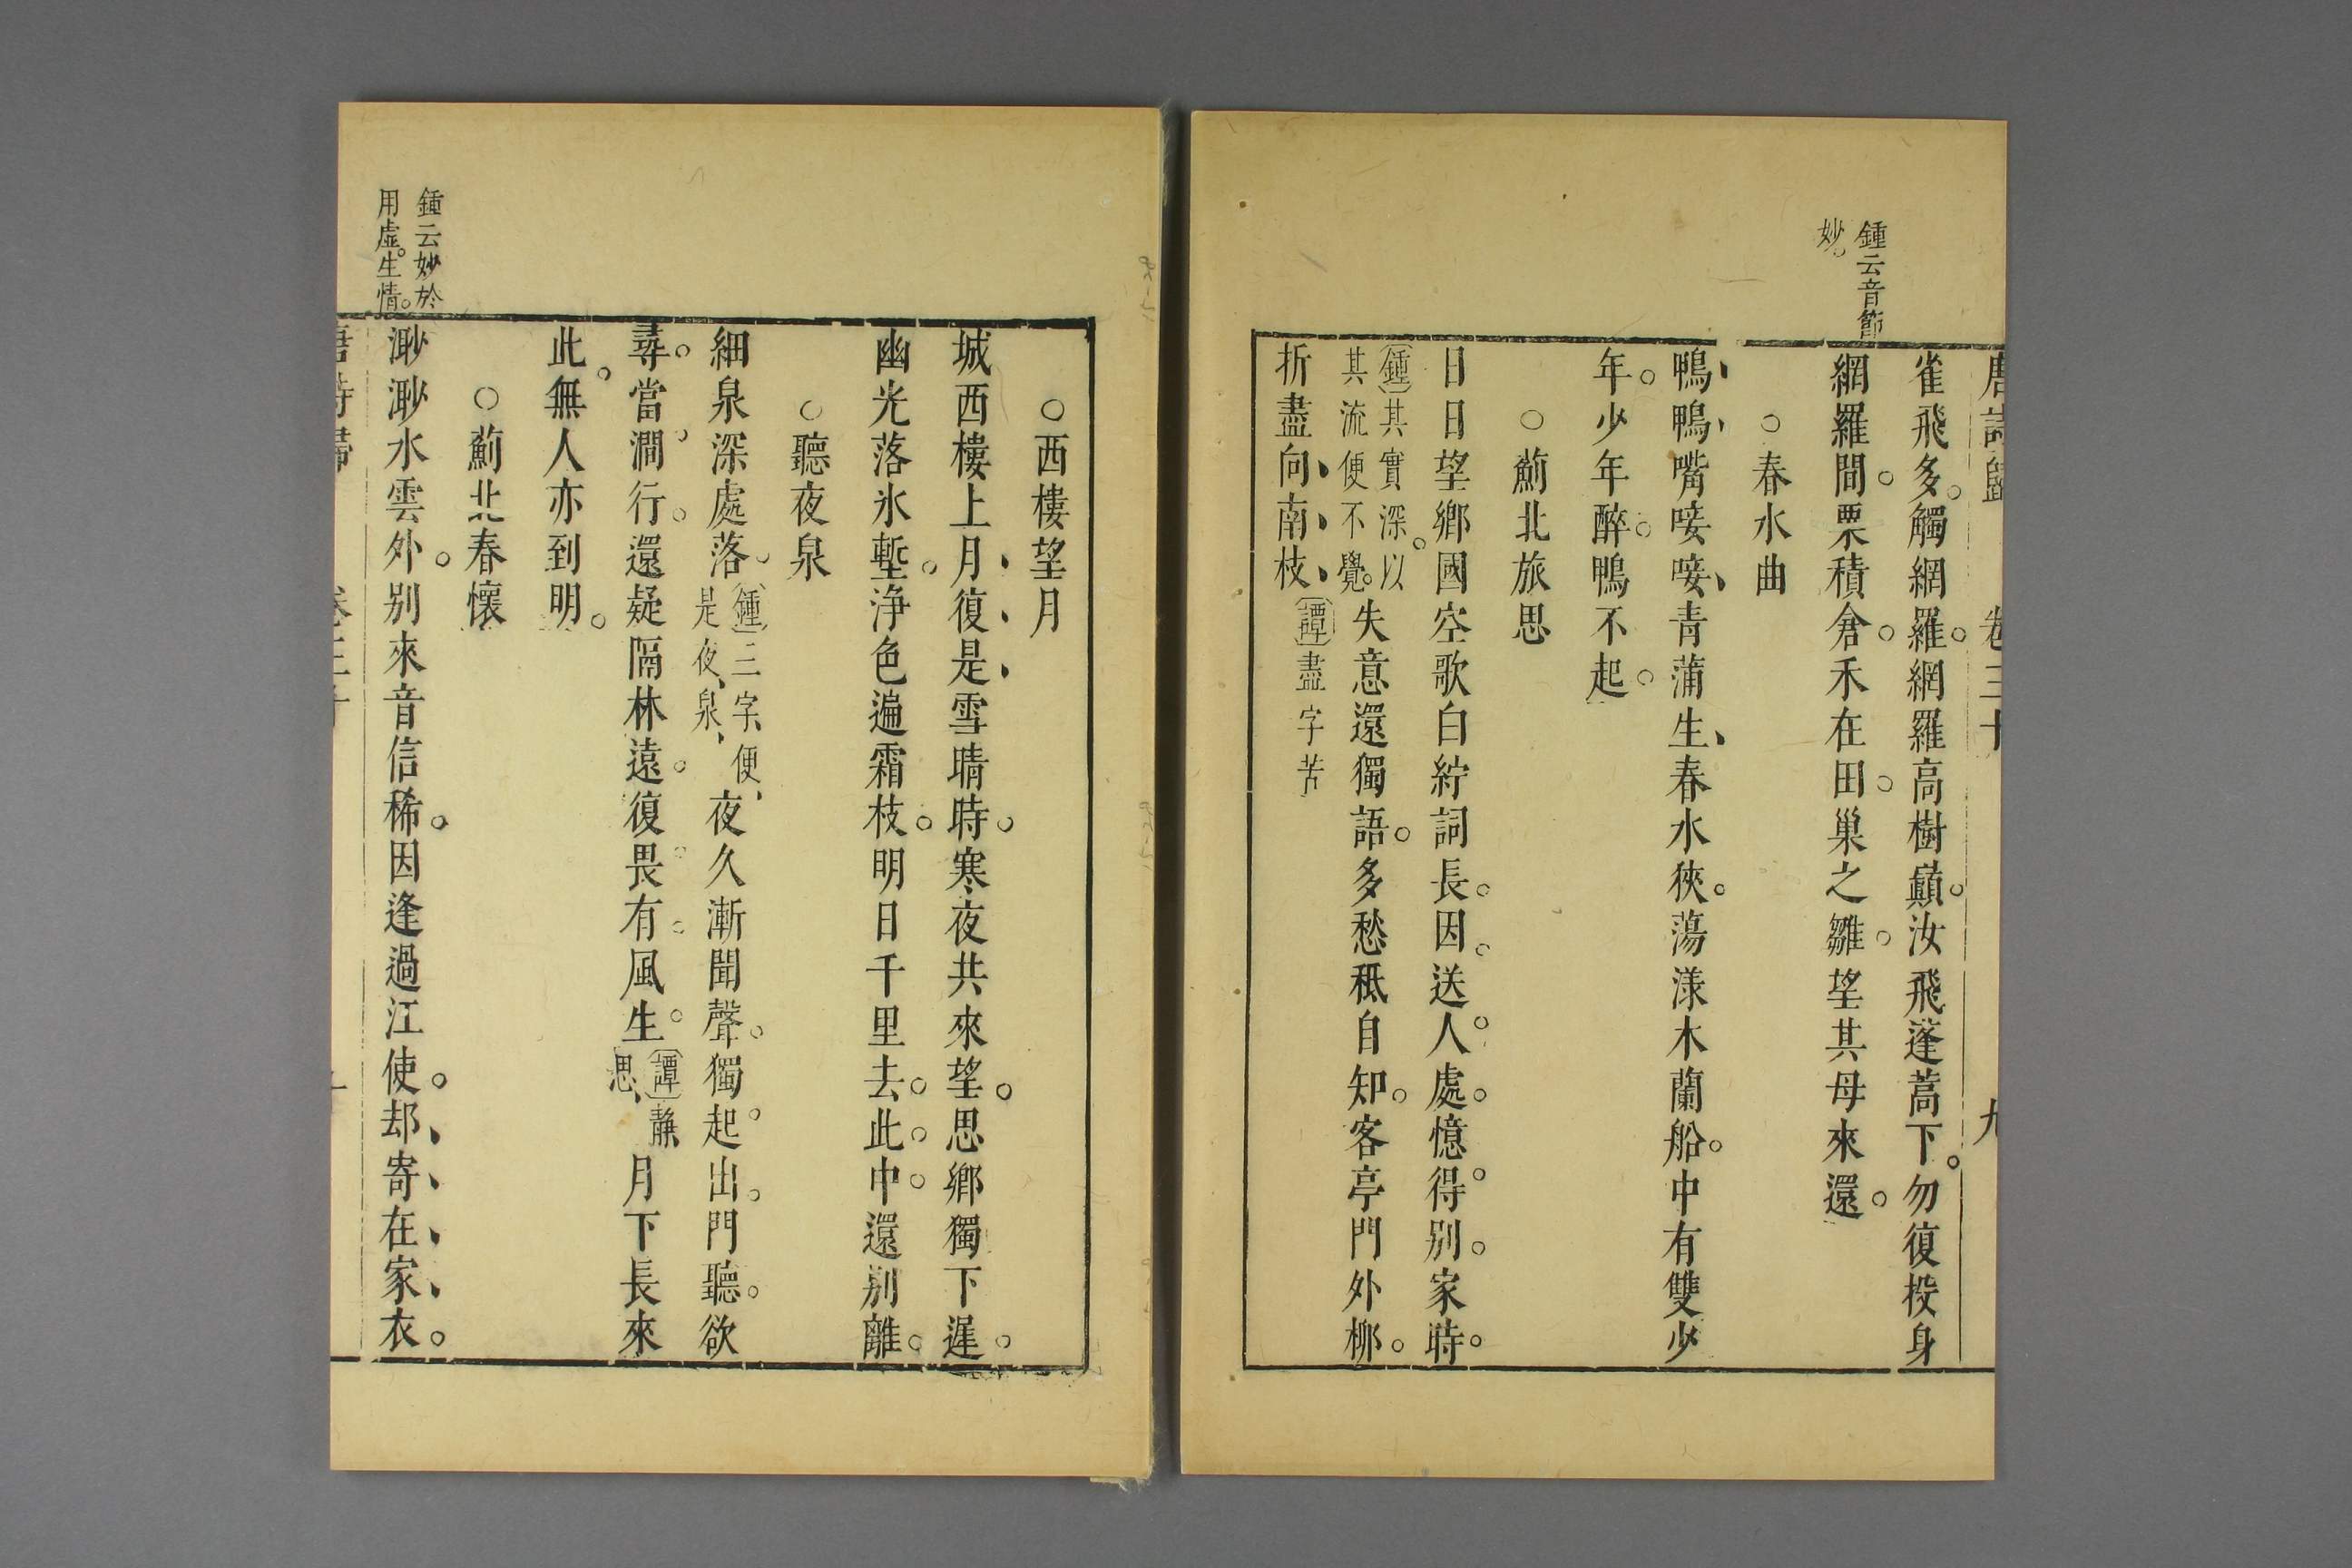 唐詩歸 卷三十 九
雀飛多觸網羅網羅高樹巔汝飛蓬蒿下勿復投身
鍾云音節
妙
網羅間粟積倉禾在田巢之雛望其母來還
○春水曲
鴨鴨嘴唼唼青蒲生春水狹蕩漾木蘭船中有雙少
年少年醉鴨不起
○薊北旅思
日日望鄉國空歌白紵詞長因送人處憶得別家時
鍾其實深以
其流便不覺
失意還獨語多愁秪自知客亭門外柳
折盡向南枝
譚盡字苦
○西樓望月
城西樓上月復是雪晴時寒夜共來望思鄉獨下遲
幽光落氷塹浄色遍霜枝明日千里去此中還別離
○聽夜泉
細泉深處落
鍾三字便
是夜泉
夜久漸聞聲獨起出門聽欲
尋當澗行還疑隔林遠復畏有風生
譚靜
思
月下長來
此無人亦到明
○薊北春懷
鍾云妙於
用虛生情
渺渺水雲外别來音信稀因逢過江使却寄在家衣
唐詩歸 卷三十